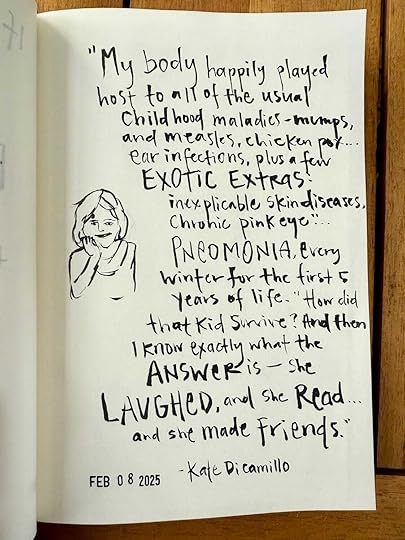 "My body happily played
host to all of the usual
childhood maladies - mumps,
and measles, chicken pox...
ear infections, plus a few
EXOTIC EXTRAS:
inexplicable skin diseases,
Chronic pink eye"...
PNEOMONIA, every
winter for the first 5
years of life. "How did
that kid survive? And then
I know exactly what the
ANSWER is — she
LAUGHED, and she Read...
and she made friends."
- Kate Dicamillo
FEB 08 2025